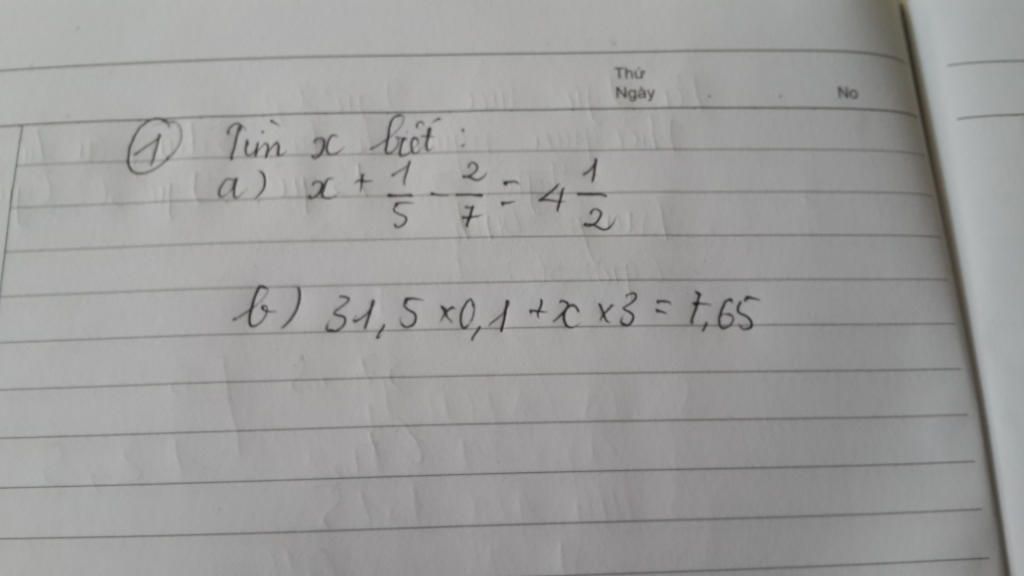 Thứ
Ngày No
① Tìm x biết :
a) x + 1/5 - 2/7 = 4 1/2
b) 31,5 × 0,1 + x × 3 = 7,65